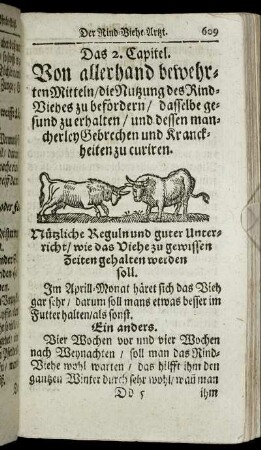 Der Rind-Viehe Artzt. 609
Das 2. Capitel.
Von allerhand bewehr-
ten Mitteln/ die Nutzung des Rind-
Viehes zu befördern/ dasselbe ge-
sund zu erhalten/ und dessen man-
cherley Gebrechen und Kranck-
heiten zu curiren.
Nützliche Reguln und guter Unter-
richt/ wie das Viehe zu gewissen
Zeiten gehalten werden
soll.
Im Aprill-Monat häret sich das Vieh
gar sehr/ darum soll mans etwas besser im
Futter halten/ als sonst.
Ein anders.
Vier Wochen vor und vier Wochen
nach Weynachten/ soll man das Rind-
Viehe wohl warten/ das hilfft ihm den
gantzen Winter durch sehr wohl/ wañ man
Dd 5 ihm